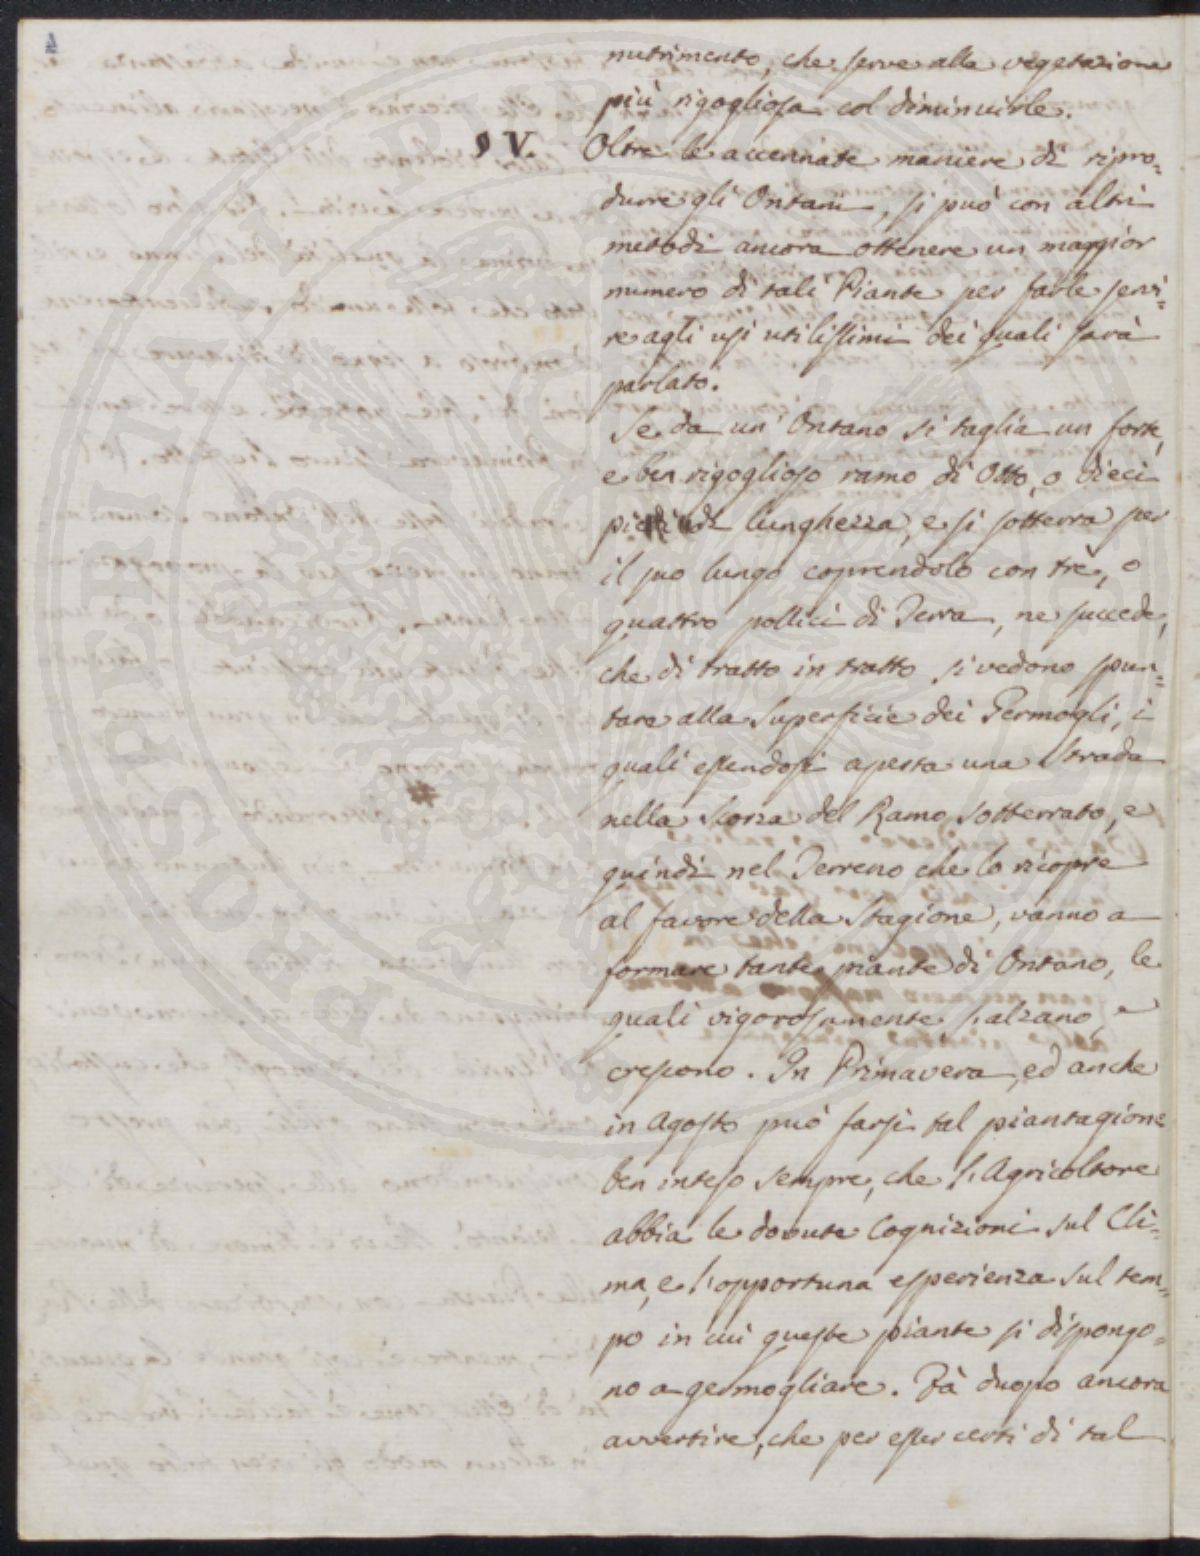 nutrimento, che serve alla vegetazione
più rigogliosa col diminuirle.
§ V. Oltre le accennate maniere di ripro=
durre gli Ontani, si può con altri
metodi ancora ottenere un maggior
numero di tali Piante per farle servi=
re agli usi utilissimi dei quali sarà
parlato.
Se da un' Ontano si taglia un forte,
e ben rigoglioso ramo di Otto, o dieci
piedi di lunghezza, e si sotterra per
il suo lungo coprendolo con trè, o
quattro pollici di Terra, ne succede,
che di tratto in tratto si vedono spun=
tare alla Superficie dei Germogli, i
quali essendosi aperta una Strada
nella Scorza del Ramo sotterrato, e
quindi nel Terreno che lo ricopre
al favore della Stagione, vanno a
formare tante piante di Ontano, le
quali vigorosamente s'alzano, e
crescono. In Primavera, ed anche
in Agosto può farsi tal piantagione
ben inteso sempre, che l'Agricoltore
abbia le dovute Cognizioni sul Cli=
ma, e l'opportuna esperienza sul tem=
po in cui queste piante si dispongo=
no a germogliare. Fà duopo ancora
avvertire, che per esser certi di tal
PROSPERITATI PUBLICAE